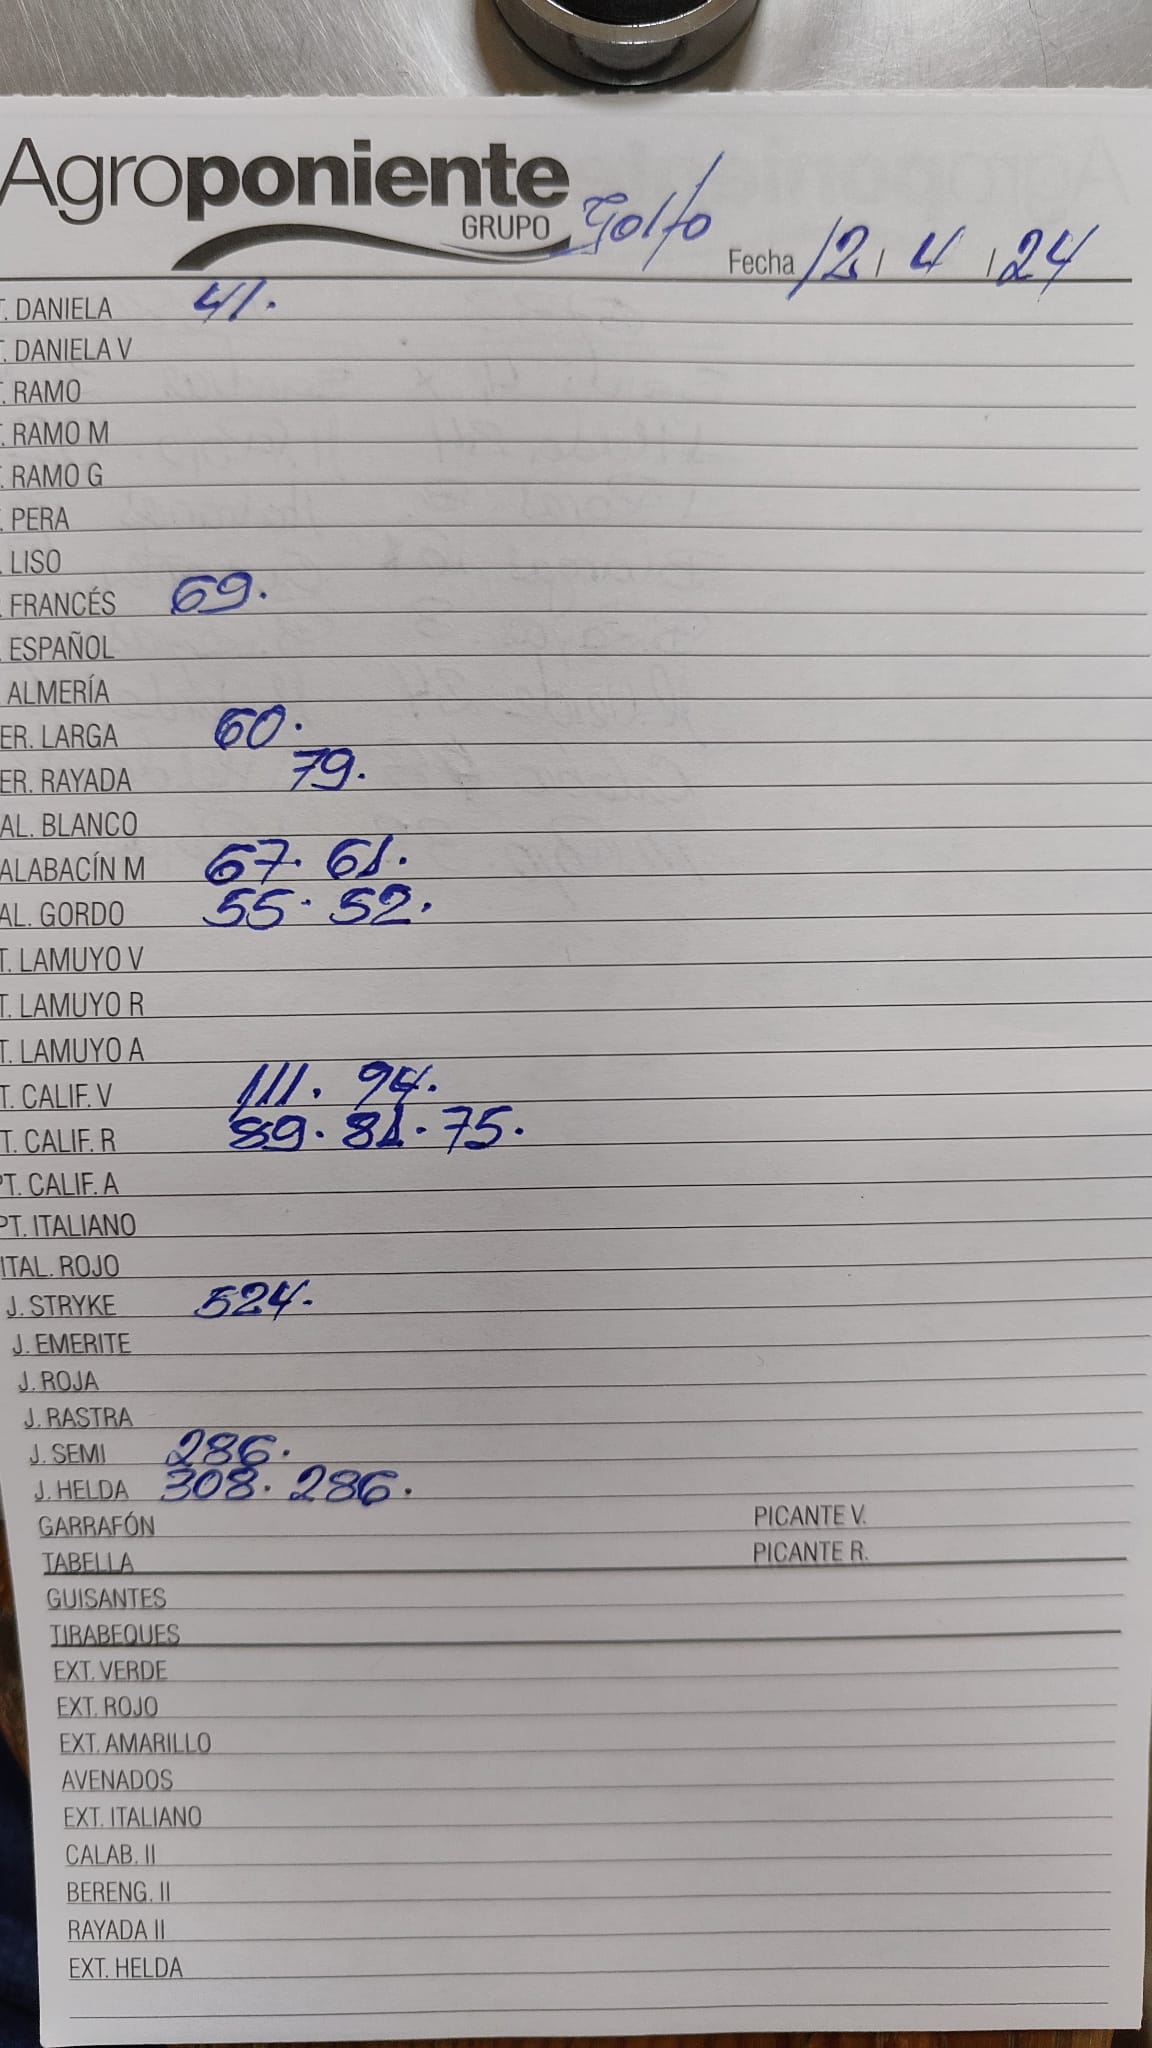 Agroponiente
GRUPO Golfo Fecha 12 / 4 / 24
T. DANIELA 41.
T. DANIELA V
T. RAMO
T. RAMO M
T. RAMO G
. PERA
. LISO
. FRANCÉS 69.
. ESPAÑOL
ALMERÍA
ER. LARGA 60.
ER. RAYADA 79.
AL. BLANCO
ALABACÍN M 67. 61.
AL. GORDO 55. 52.
T. LAMUYO V
T. LAMUYO R
T. LAMUYO A
T. CALIF. V 111. 94.
T. CALIF. R 89. 81. 75.
PT. CALIF. A
PT. ITALIANO
ITAL. ROJO
J. STRYKE 524.
J. EMERITE
J. ROJA
J. RASTRA
J. SEMI 286.
J. HELDA 308. 286.
GARRAFÓN PICANTE V.
TABELLA PICANTE R.
GUISANTES
TIRABEQUES
EXT. VERDE
EXT. ROJO
EXT. AMARILLO
AVENADOS
EXT. ITALIANO
CALAB. II
BERENG. II
RAYADA II
EXT. HELDA